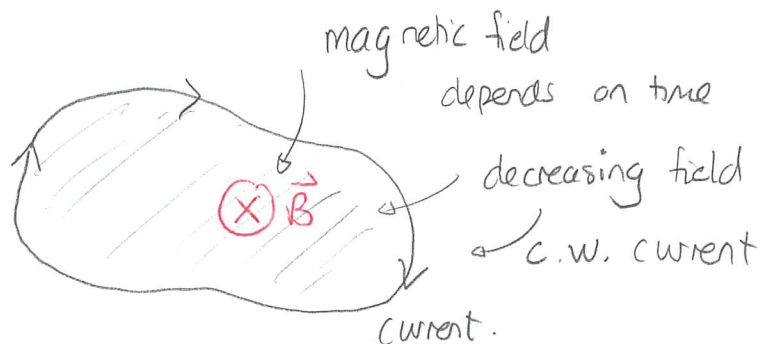 magnetic field
depends on time
decreasing field
X B⃗
c.w. current
current.